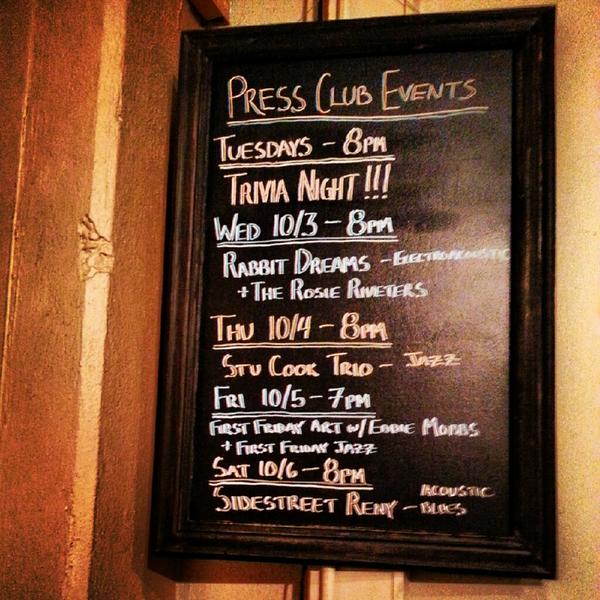 PRESS CLUB EVENTS
TUESDAYS - 8PM
TRIVIA NIGHT !!!
WED 10/3 - 8PM
RABBIT DREAMS - ELECTROACOUSTIC
+ THE ROSIE RIVETERS
THU 10/4 - 8PM
STU COOK TRIO - JAZZ
FRI 10/5 - 7PM
FIRST FRIDAY ART W/ EDDIE MOBBS
+ FIRST FRIDAY JAZZ
SAT 10/6 - 8PM
SIDESTREET RENY - ACOUSTIC
BLUES